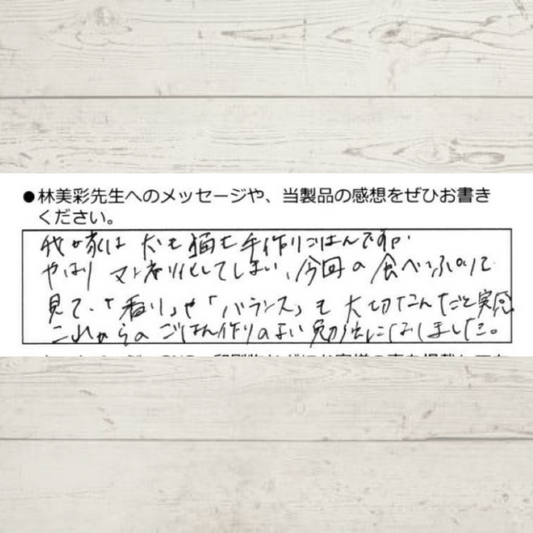 ●林美彩先生へのメッセージや、当製品の感想をぜひお書き
ください。
我が家は 犬も猫も手作りごはんですが、
やはり マンネリ化してしまい、今回の 食べっぷりを
見て、「香り」や「バランス」も 大切なんだと実感
これからの ごはん作りのよい 勉強になりました。